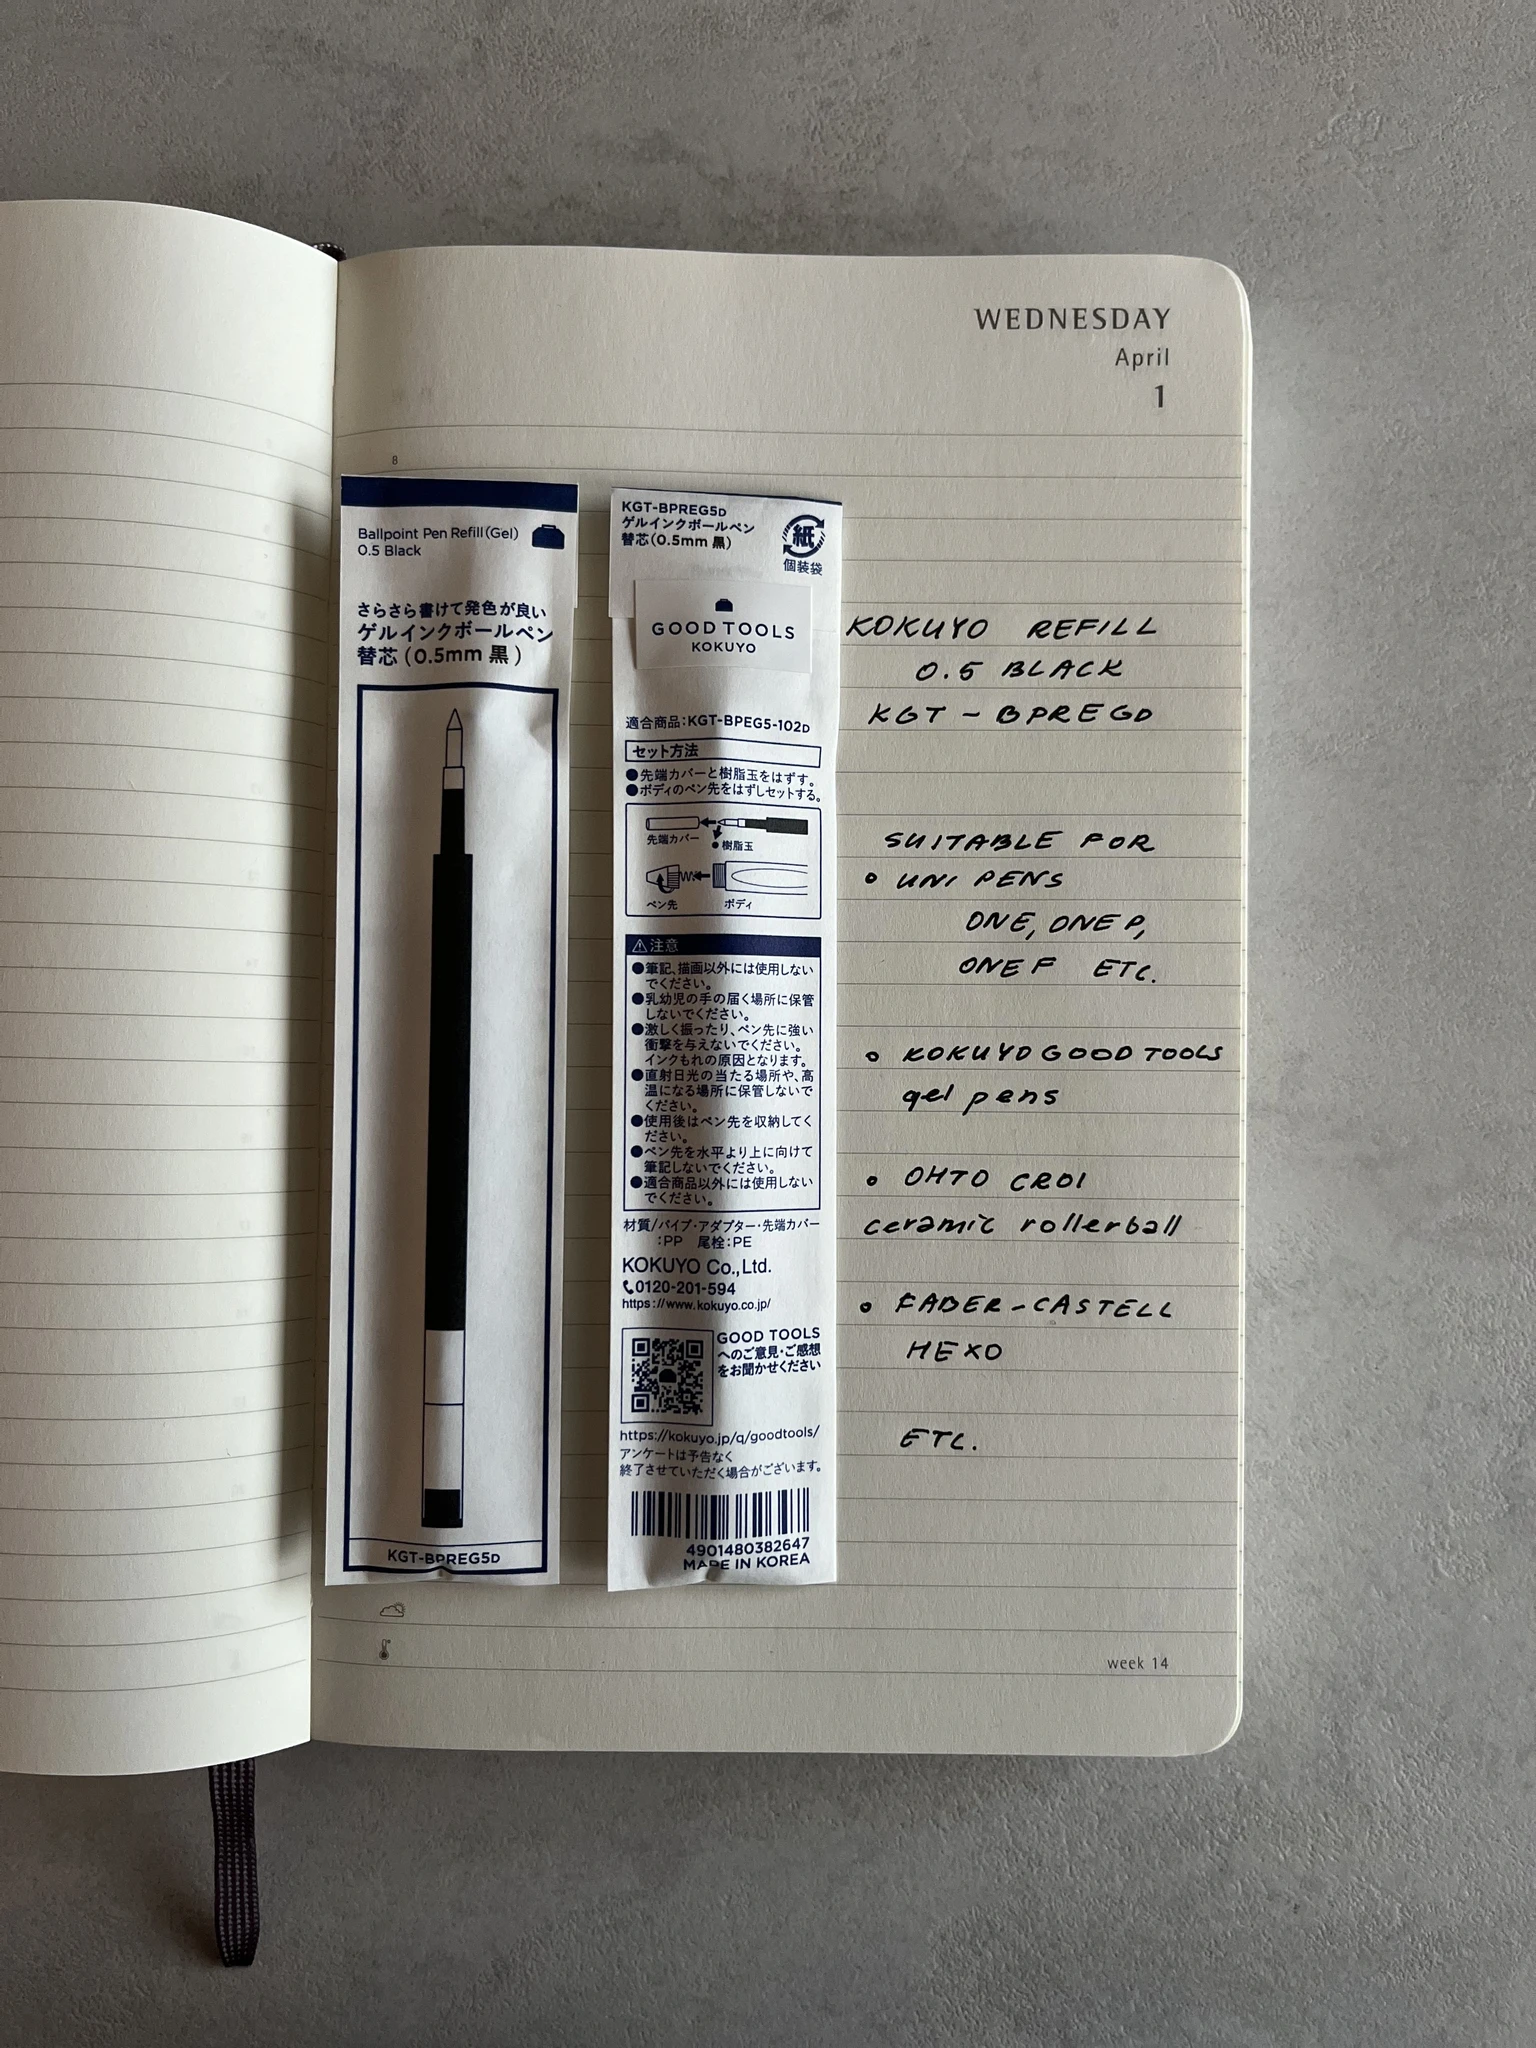 WEDNESDAY
April
1
8
Ballpoint Pen Refill (Gel)
0.5 Black
さらさら書けて発色が良い
ゲルインクボールペン
替芯(0.5mm 黒)
KGT-BPREG5D
KGT-BPREG5D
ゲルインクボールペン
替芯(0.5mm 黒)
紙
個装袋
GOOD TOOLS
KOKUYO
適合商品:KGT-BPEG5-102D
セット方法
●先端カバーと樹脂玉をはずす。
●ボディのペン先をはずしセットする。
先端カバー
樹脂玉
ペン先
ボディ
注意
●筆記、描画以外には使用しない
でください。
●乳幼児の手の届く場所に保管
しないでください。
●激しく振ったり、ペン先に強い
衝撃を与えないでください。
インクもれの原因となります。
●直射日光の当たる場所や、高
温になる場所に保管しないで
ください。
●使用後はペン先を収納してく
ださい。
●ペン先を水平より上に向けて
筆記しないでください。
●適合商品以外には使用しない
でください。
材質/パイプ・アダプター・先端カバー
:PP 尾栓:PE
KOKUYO Co.,Ltd.
0120-201-594
https://www.kokuyo.co.jp/
GOOD TOOLS
へのご意見・ご感想
をお聞かせください
https://kokuyo.jp/q/goodtools/
アンケートは予告なく
終了させていただく場合がございます。
4901480382647
MADE IN KOREA
KOKUYO REFILL
0.5 BLACK
KGT - BPREGD
SUITABLE FOR
• UNI PENS
ONE, ONE P,
ONE F ETC.
• KOKUYO GOOD TOOLS
gel pens
• OHTO CR01
ceramic rollerball
• FABER-CASTELL
HEXO
ETC.
week 14